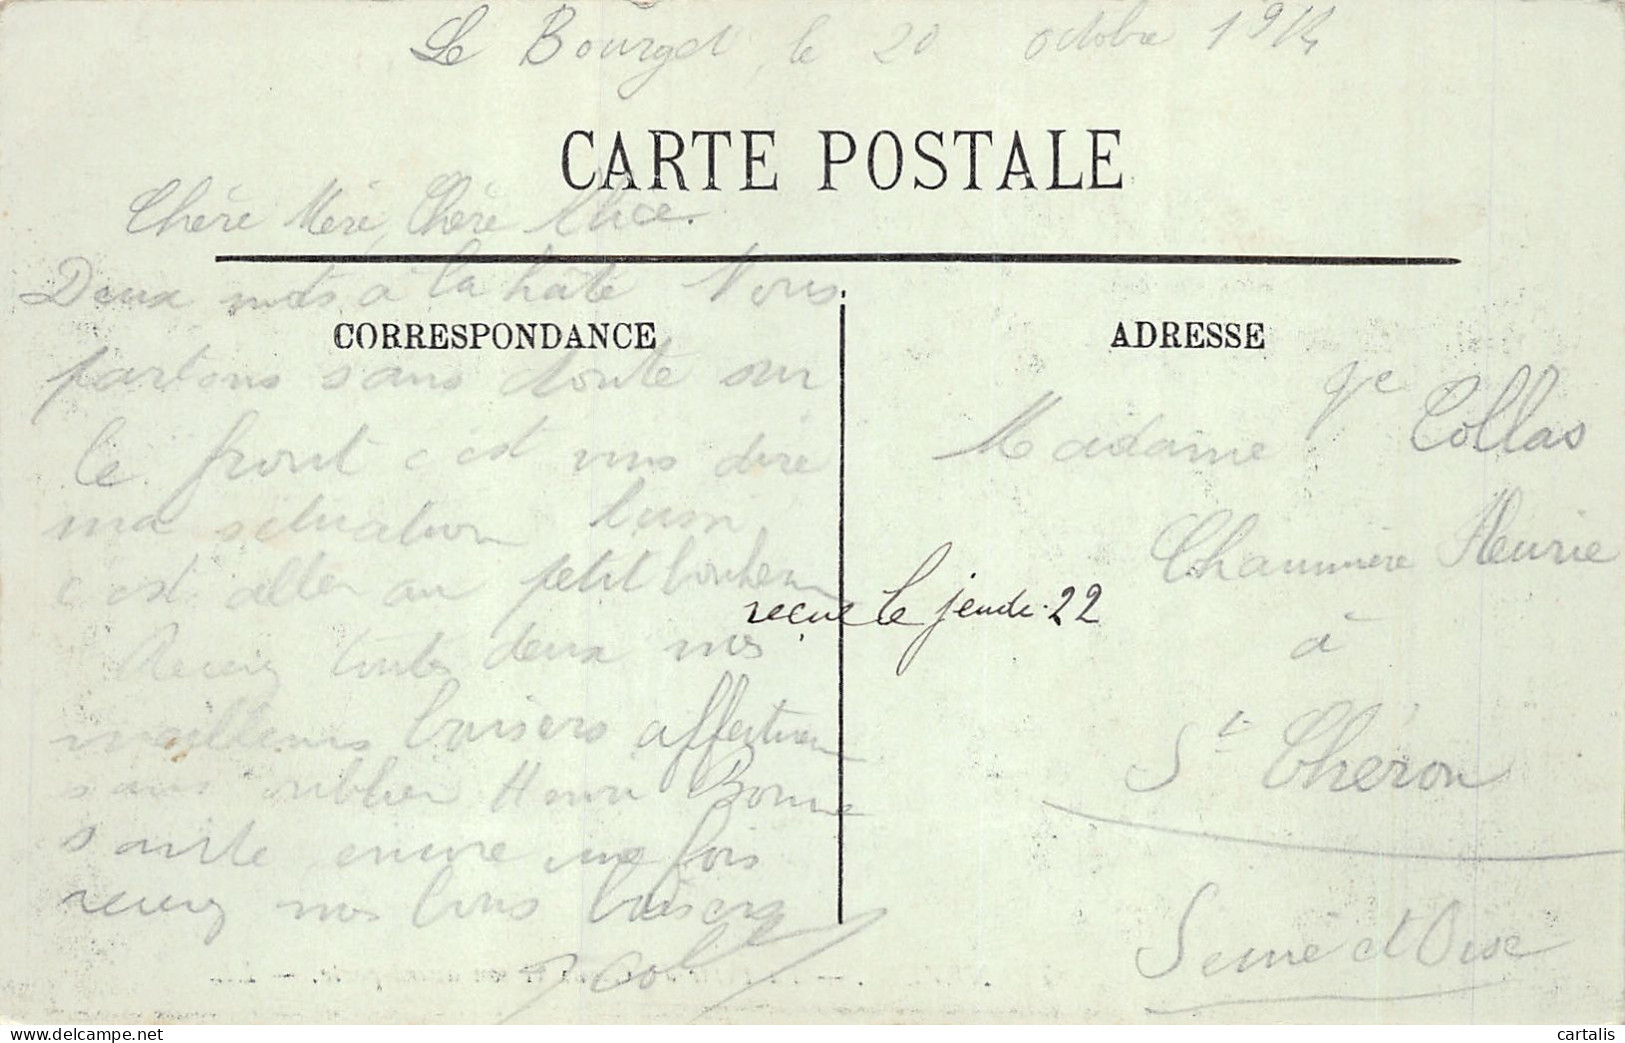 Le Bourget, le 20 octobre 1914
CARTE POSTALE
Chère Mère, Chère Alice.
Deux mots à la hâte Nous
CORRESPONDANCE
partons sans doute sur
le front c'est vous dire
ma situation
c'est aller au petit bonheur
Recevez toutes deux mes
meilleurs baisers affectueux
sans oublier Henri Bonne
santé encore une fois
recevez mes bons baisers
ADRESSE
Madame Collas
Chaumière Fleurie
reçue le jeudi 22
à
St Chéron
Seine et Oise
cartalis